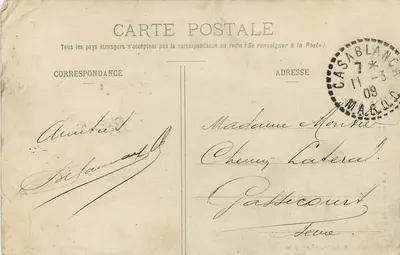 CARTE POSTALE
Tous les pays étrangers n'acceptent pas la correspondance au recto (Se renseigner à la Poste)
CORRESPONDANCE
ADRESSE
CASABLANCA
7 *
11 - 3
09
MAROC
Amitiés
Madame
Chemin Latéral
Gassicourt